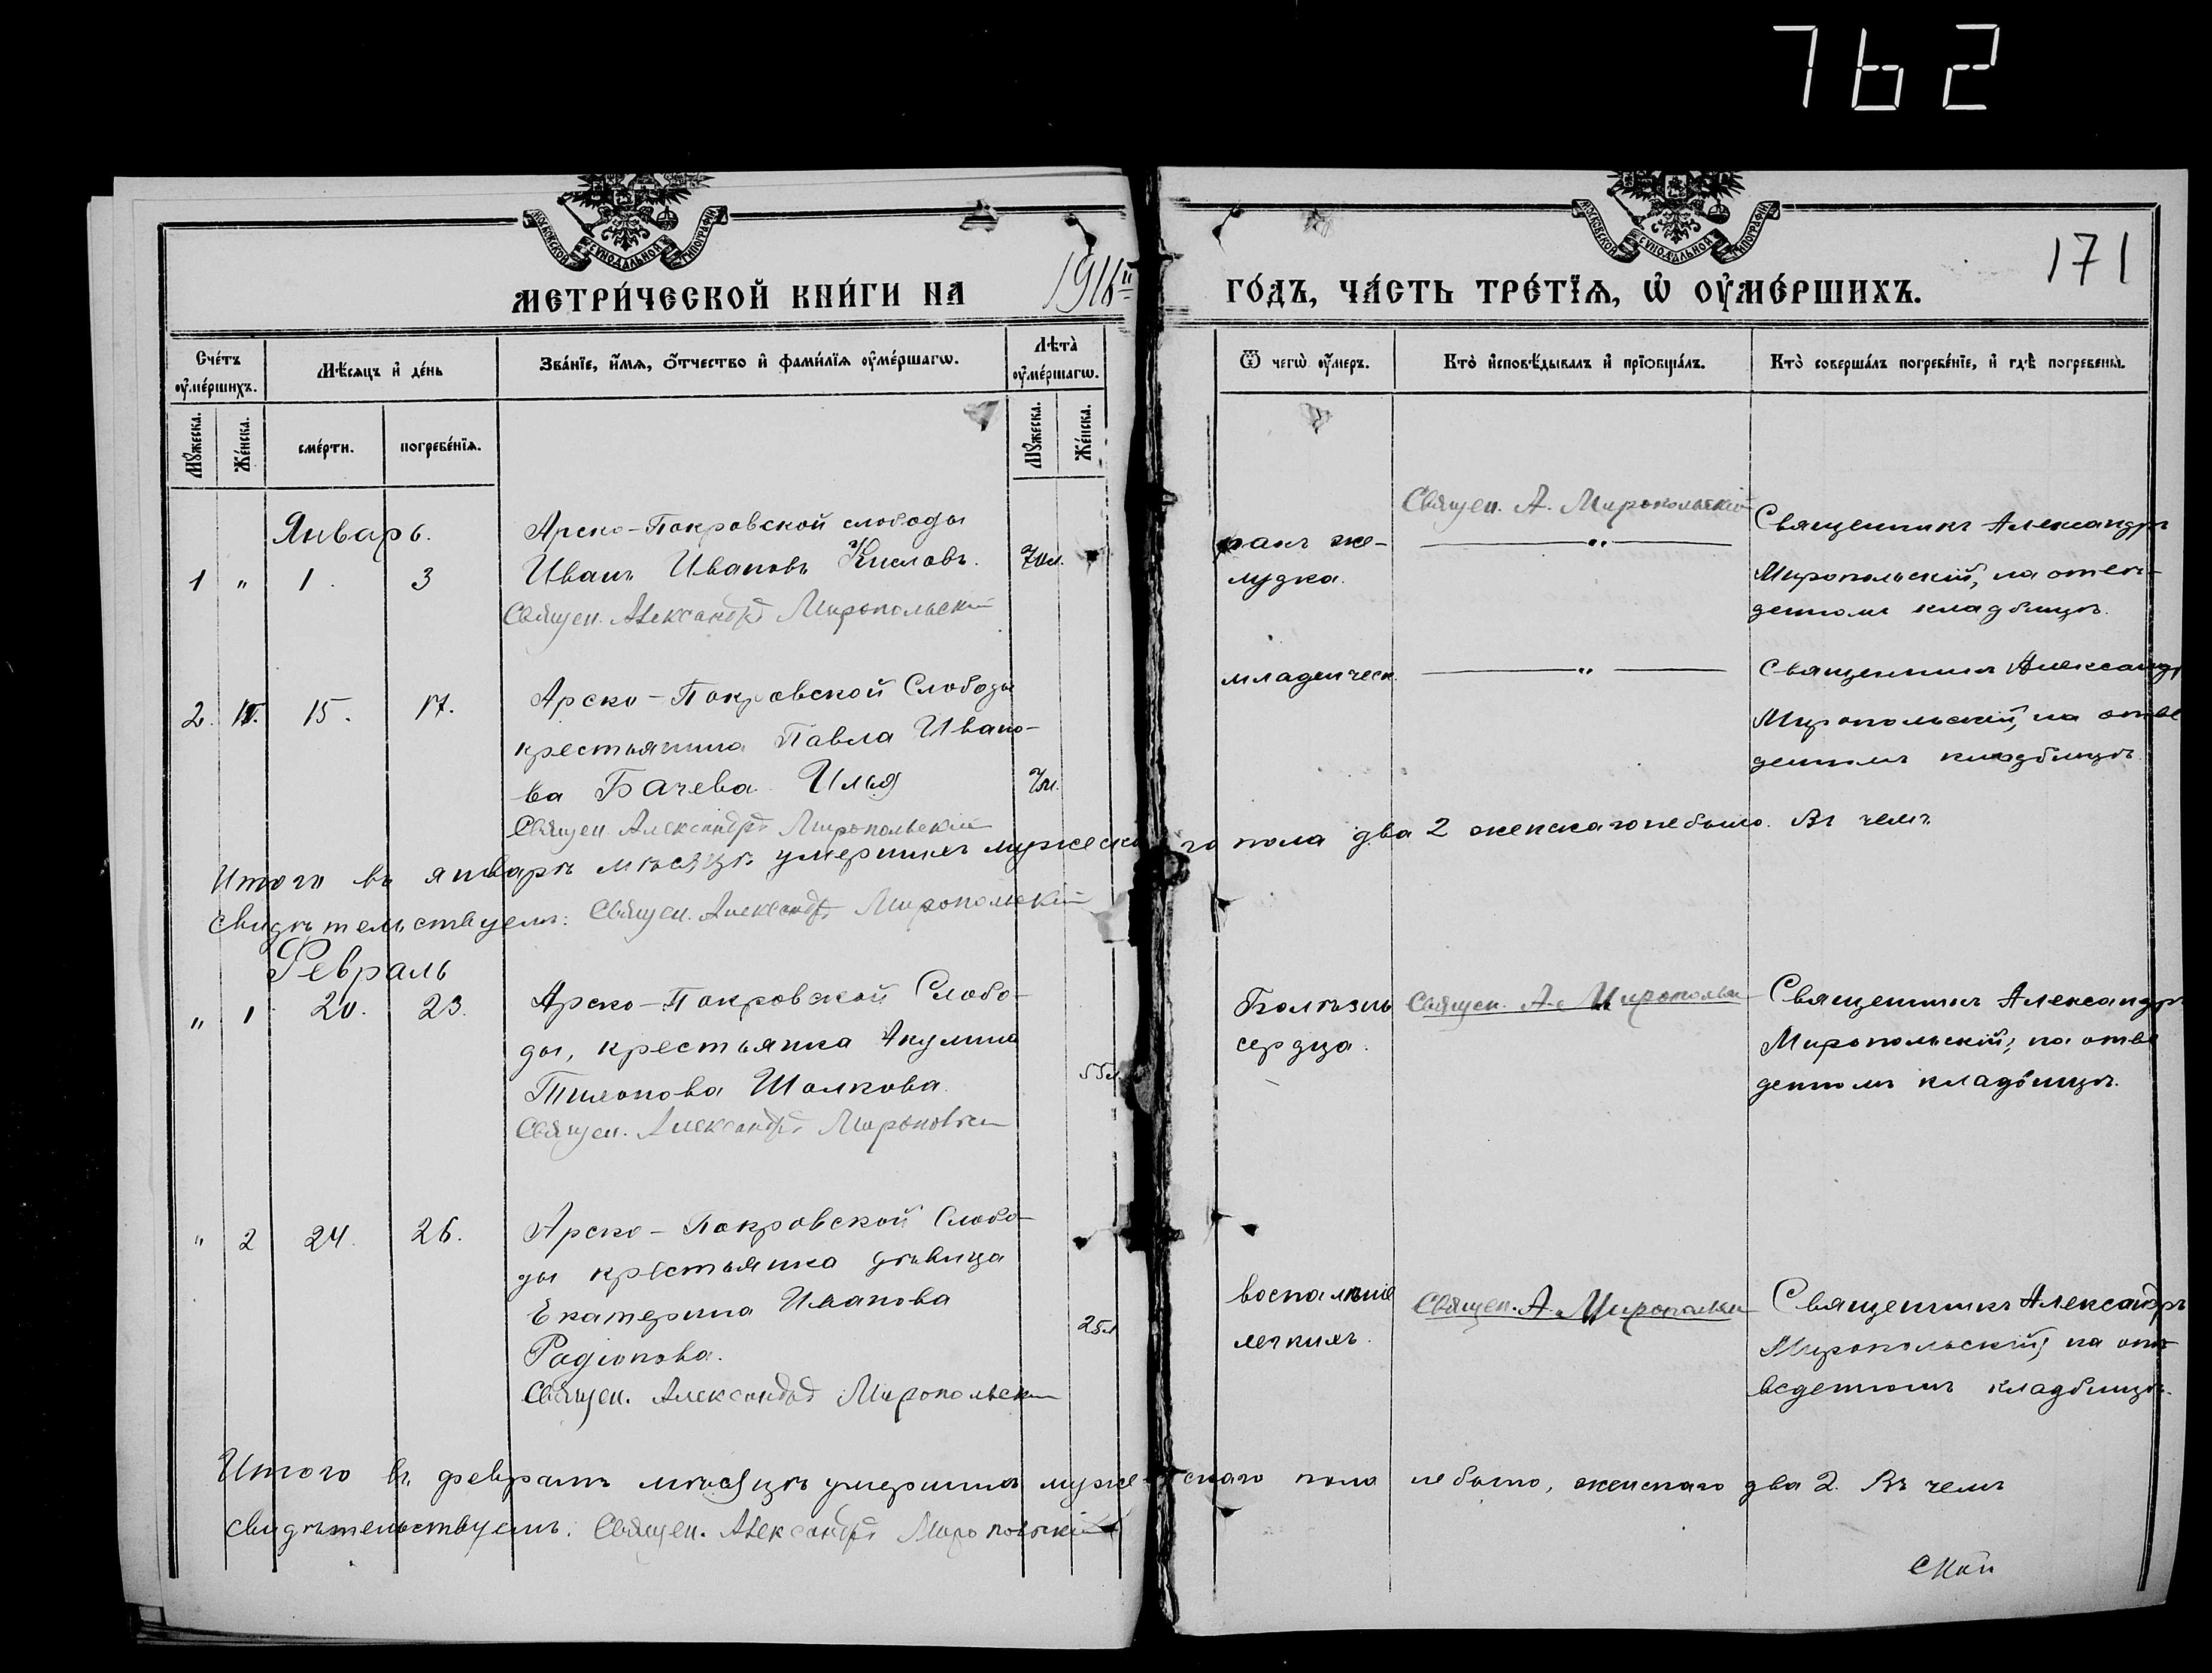 762
МОСКОВСКОЙ СУНОДАЛЬНОЙ ТИПОГРАФІИ
МОСКОВСКОЙ СУНОДАЛЬНОЙ ТИПОГРАФІИ
171
МЕТРИ́ЧЕСКОЙ КНИ́ГИ НА 1916й ГО́ДЪ, ЧА́СТЬ ТРЕ́ТЇѦ, Ѡ҆ ОУ҆МЕ́РШИХЪ.
Сче́тъ оу҆ме́ршихъ.
Мѣ́сѧцъ и҆ де́нь
Зва́нїе, и҆́мѧ, ѻ҆́тчество и҆ фами́лїѧ оу҆ме́ршагѡ.
Лѣ́та̀ оу҆ме́ршагѡ.
Ѿ чегѡ̀ оу҆́меръ.
Кто̀ и҆сповѣ́дывалъ и҆ прїѡбща́лъ.
Кто̀ соверша́лъ погребе́нїе, и҆ гдѣ̀ погребены̀.
Мꙋ́жеска.
Же́нска.
сме́рти.
погребе́нїѧ.
Мꙋ́жеска.
Же́нска.
Январь.
1 " 1. 3
Арско-Покровской слободы
Иванъ Ивановъ Кисловъ.
70л.
Священ. Александръ Миропольскій
ракъ же-
лудка.
Священ. А. Миропольскій
"
Священникъ Александръ
Миропольскій, на отве-
денномъ кладбищѣ.
2. 15. 17.
Арско-Покровской Слободы
крестьянина Павла Ивано-
ва Бачева Илья
Священ. Александръ Миропольскій
младенческ.
"
Священникъ Александръ
Миропольскій, на отве
денномъ кладбищѣ
Итого въ январѣ мѣсяцѣ умершихъ мужескаго пола два 2 женскаго не было. Въ чемъ
свидѣтельствуемъ: Священ. Александръ Миропольскій
Февраль
" 1 20. 23.
Арско-Покровской Слобо-
ды, крестьянка Акулина
55л
Священ. Александръ Миропольскій
Болѣзнь
сердца.
Священ. А. Миропольскій
Священникъ Александръ
Миропольскій, на отве
денномъ кладбищѣ.
" 2 24. 26.
Арско-Покровской Слобо-
ды крестьянка дѣвица
Екатерина Иванова
Радіонова.
25л
Священ. Александръ Миропольскій
воспаленіе
легкихъ.
Священ. А. Миропольскій
Священникъ Александръ
Миропольскій, на от-
веденномъ кладбищѣ.
Итого въ февралѣ мѣсяцѣ умершихъ мужескаго пола не было, женскаго два 2. Въ чемъ
свидѣтельствуемъ: Священ. Александръ Миропольскій